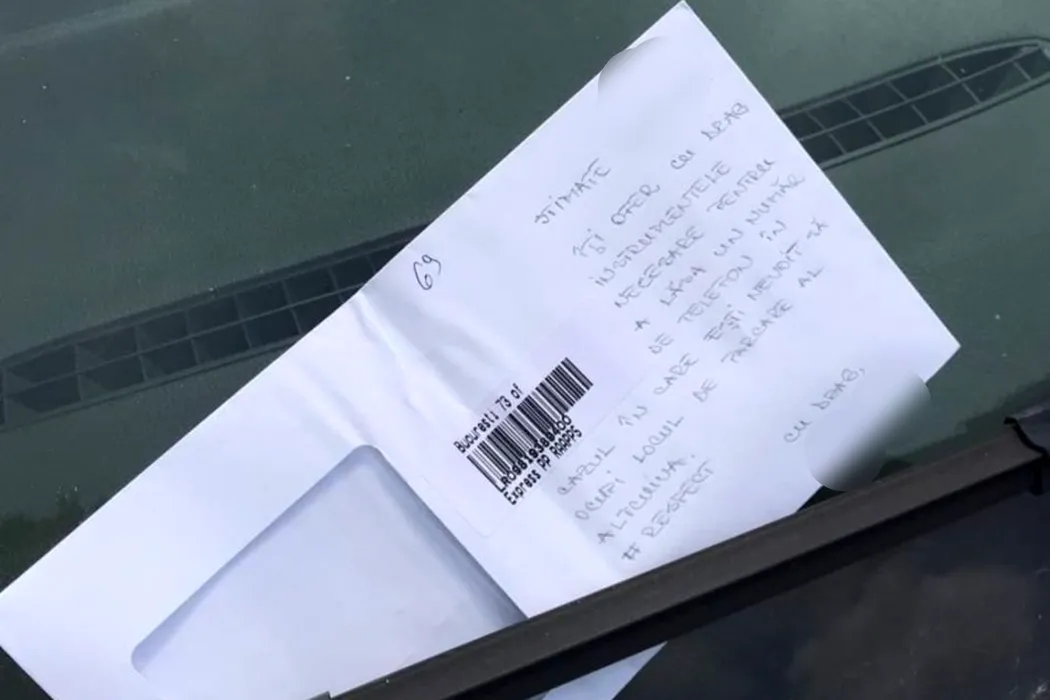 69
STIMATE
ÎȚI OFER CU DRAG
INSTRUMENTELE
NECESARE PENTRU
A LĂSA UN NUMĂR
DE TELEFON ÎN
CAZUL ÎN CARE EȘTI NEVOIT SĂ
OCUPI LOCUL DE PARCARE AL
ALTCUIVA.
# RESPECT
CU DRAG,
Bucuresti 73 of
Express PP ROOPPS